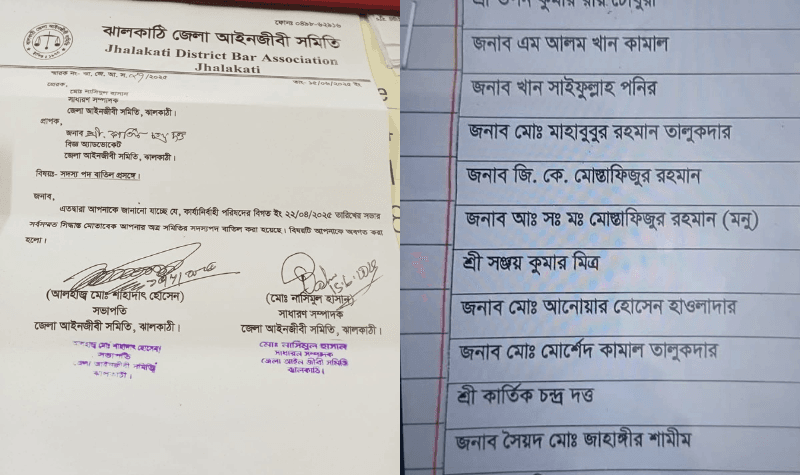 ফোনঃ ০৪৯৮-৬২৯১৬
ঝালকাঠি জেলা আইনজীবী সমিতি
Jhalakati District Bar Association
Jhalakati
স্মারক নং- আ, জে, আ, স, /২০২৫
প্রেরক,
মোঃ নাসিমুল হাসান
সাধারণ সম্পাদক
জেলা আইনজীবী সমিতি, ঝালকাঠী।
প্রাপক,
জনাব শ্রী কার্তিক চন্দ্র দত্ত
বিজ্ঞ অ্যাডভোকেট
জেলা আইনজীবী সমিতি, ঝালকাঠী।
বিষয়ঃ- সদস্য পদ বাতিল প্রসঙ্গে।
জনাব,
এতদ্বারা আপনাকে জানানো যাচ্ছে যে, কার্যনির্বাহী পরিষদের বিগত ইং ২২/০৪/২০২৫ তারিখের সভার
সর্বসম্মত সিদ্ধান্ত মোতাবেক আপনার অত্র সমিতির সদস্যপদ বাতিল করা হয়েছে। বিষয়টি আপনাকে অবগত করা
হলো।
(আলহাজ্ব মোঃ শাহাদাৎ হোসেন)
সভাপতি
জেলা আইনজীবী সমিতি, ঝালকাঠী।
(মোঃ নাসিমুল হাসান)
সাধারণ সম্পাদক
জেলা আইনজীবী সমিতি, ঝালকাঠী।
আলহাজ্ব মোঃ শাহাদাৎ হোসেন
সভাপতি
জেলা আইনজীবী সমিতি
ঝালকাঠী।
মোঃ নাসিমুল হাসান
সাধারন সম্পাদক
জেলা আইন জীবী সমিতি
ঝালকাঠি।
জনাব এম আলম খান কামাল
জনাব খান সাইফুল্লাহ পনির
জনাব মোঃ মাহাবুবুর রহমান তালুকদার
জনাব জি. কে. মোস্তাফিজুর রহমান
জনাব আঃ সঃ মঃ মোস্তাফিজুর রহমান (মনু)
শ্রী সঞ্জয় কুমার মিত্র
জনাব মোঃ আনোয়ার হোসেন হাওলাদার
জনাব মোঃ মোর্শেদ কামাল তালুকদার
শ্রী কার্তিক চন্দ্র দত্ত
জনাব সৈয়দ মোঃ জাহাঙ্গীর শামীম